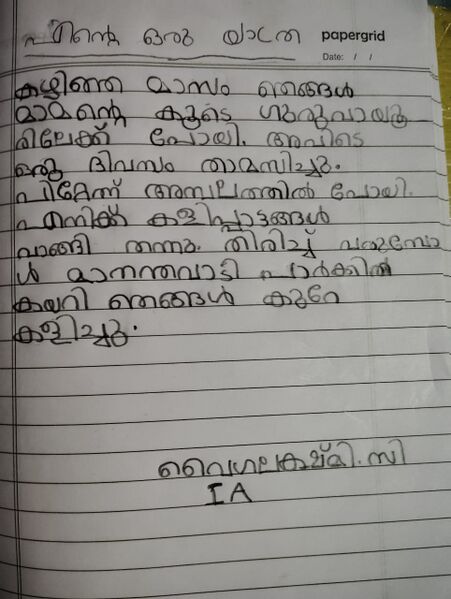 എന്റെ ഒരു യാത്ര
papergrid
Date: / /
കഴിഞ്ഞ മാസം ഞങ്ങൾ
മാമന്റെ കൂടെ ഗുരുവായൂ
രിലേക്ക് പോയി. അവിടെ
ഒരു ദിവസം താമസിച്ചു.
പിറ്റേന്ന് അമ്പലത്തിൽ പോയി.
എനിക്ക് കളിപ്പാട്ടങ്ങൾ
വാങ്ങി തന്നു. തിരിച്ച് വരുമ്പോ
ൾ മാനന്തവാടി പാർക്കിൽ
കയറി ഞങ്ങൾ കുറേ
കളിച്ചു.
വൈഗലക്ഷ്മി. സി
I A